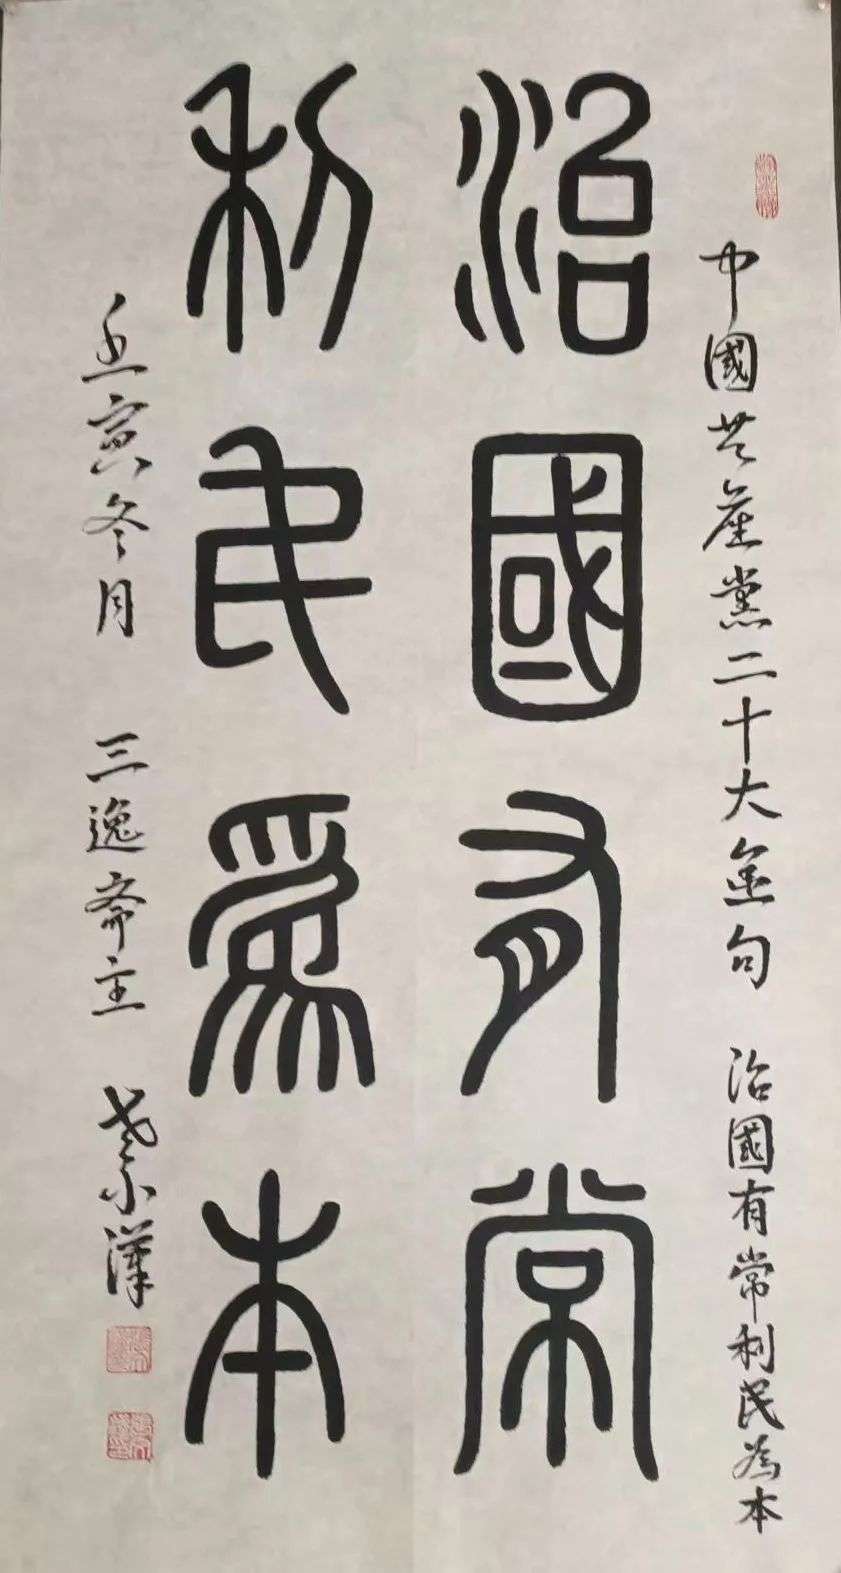 中國共產黨二十大金句 治國有常利民為本
治國有常
利民為本
壬寅冬月 三逸齋主